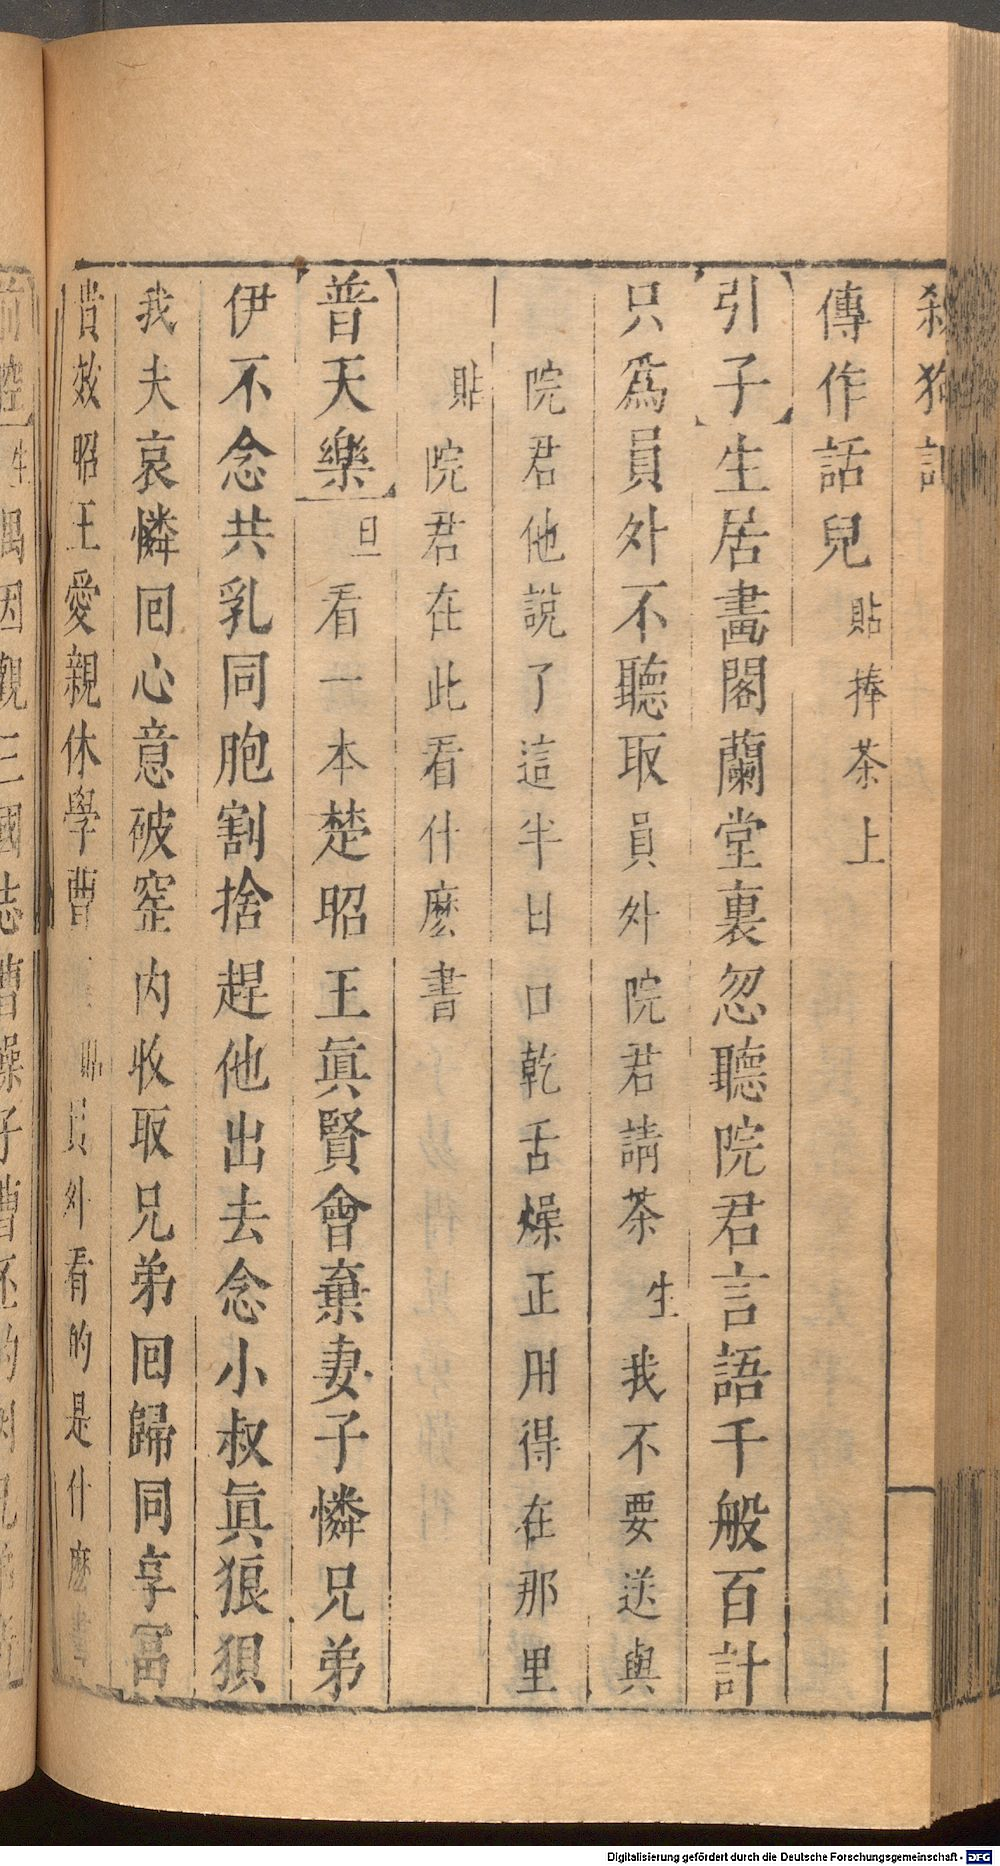 殺狗記
傳作話兒 貼捧茶上
引子 生居畵閣蘭堂裏忽聽院君言語千般百計
只爲員外不聽取員外 院君請茶 生我不要送與
院君他說了這半日口乾舌燥正用得在那里
貼院君在此看什麼書
普天樂 旦看一本楚昭王眞賢會棄妻子憐兄弟
伊不念共乳同胞割捨趕他出去念小叔眞狼狽
我夫哀憐回心意破窑内收取兄弟回歸同享富
貴效昭王愛親休學曹 貼員外看的是什麼書
生 因觀三國志曹操子曹丕的
Digitalisierung gefördert durch die Deutsche Forschungsgemeinschaft - DFG